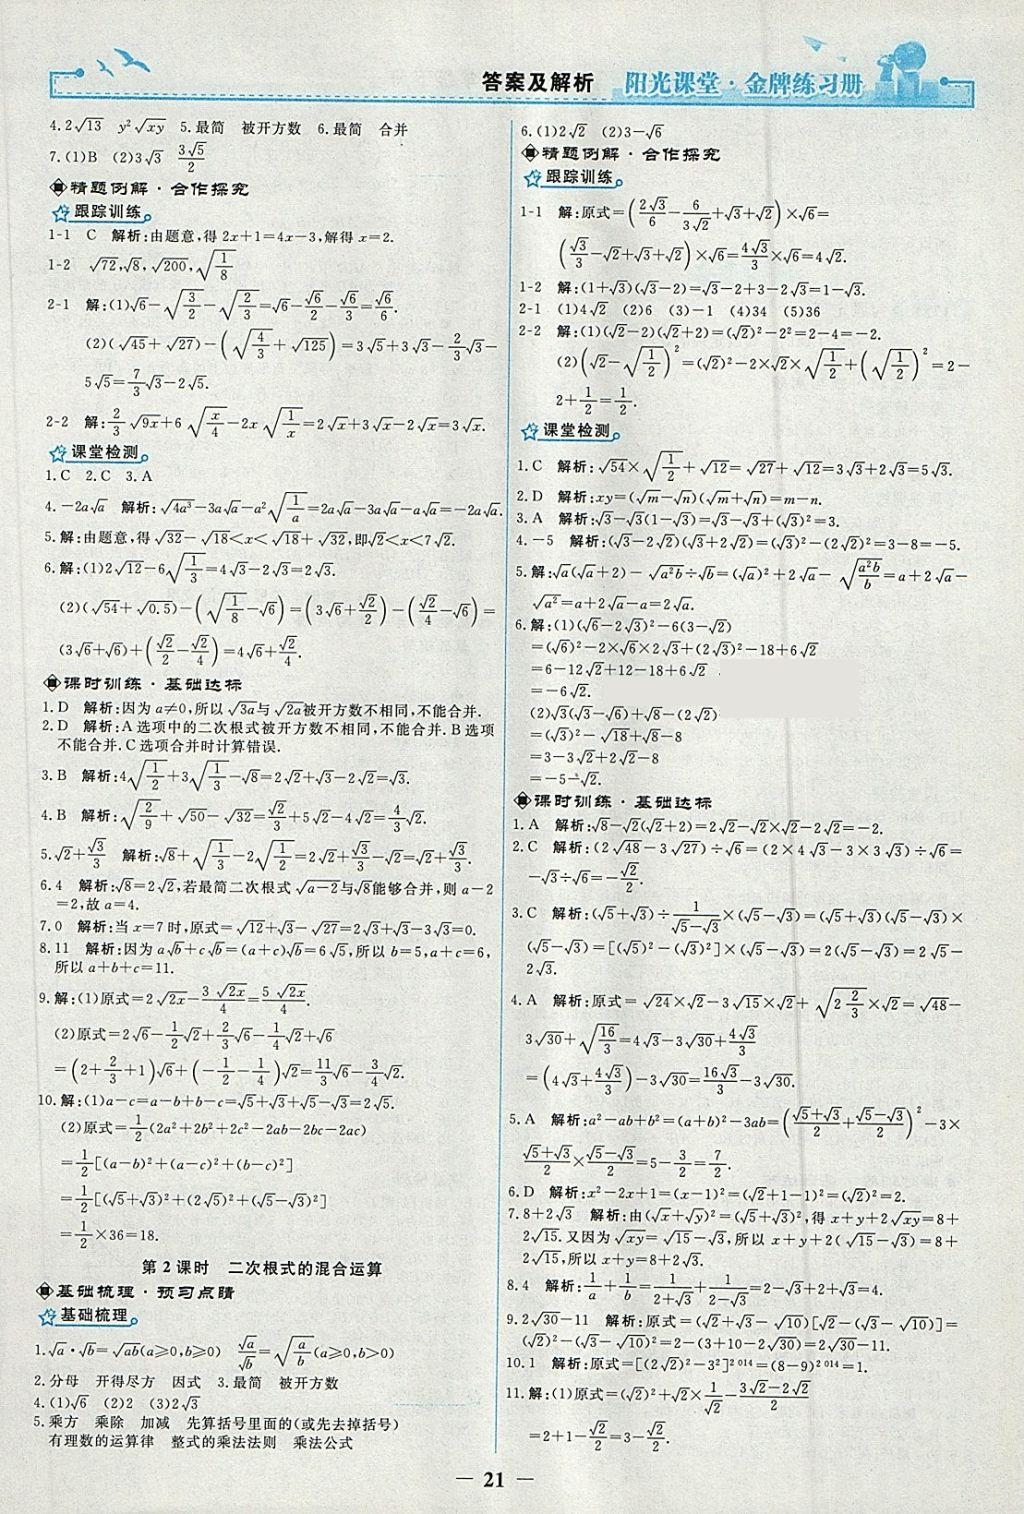 答案及解析 阳光课堂·金牌练习册
4.2√13 y²√xy 5.最简 被开方数 6.最简 合并
7.(1)B (2)3√3 3√5/2
精题例解·合作探究
跟踪训练
1-1 C 解析:由题意,得 2x+1=4x-3,解得 x=2.
1-2 √72,√8,√200,√(1/8)
2-1 解:(1)√6-√(3/2)-√(2/3)=√6-√6/2-√6/3=√6/6.
(2)(√45+√27)-(√(4/3)+√125)=3√5+3√3-2/3√3-
5√5=7/3√3-2√5.
2-2 解:2/3√9x+6√(x/4)-2x√(1/x)=2√x+3√x-2√x=3√x.
课堂检测
1.C 2.C 3.A
4.-2a√a 解析:√4a³-3a√a-a²√(1/a)=2a√a-3a√a-a√a=-2a√a.
5.解:由题意,得√32-√18<x<√18+√32,即√2<x<7√2.
6.解:(1)2√12-6√(1/3)=4√3-2√3=2√3.
(2)(√54+√0.5)-(√(1/8)-√6)=(3√6+√2/2)-(√2/4-√6)=
(3√6+√6)+(√2/2-√2/4)=4√6+√2/4.
课时训练·基础达标
1.D 解析:因为 a≠0,所以√3a与√2a被开方数不相同,不能合并.
2.D 解析:A 选项中的二次根式被开方数不相同,不能合并.B 选项
不能合并.C 选项合并时计算错误.
3.B 解析:4√(1/2)+3√(1/3)-√8=2√2+√3-2√2=√3.
4.B 解析:√(2/9)+√50-√32=√2/3+5√2-4√2=4/3√2.
5.√2+√3/3 解析:√8+√(1/3)-2√(1/2)=2√2+√3/3-√2=√2+√3/3.
6.4 解析:√8=2√2,若最简二次根式√a-2与√8能够合并,则 a-2
=2,故 a=4.
7.0 解析:当 x=7 时,原式=√12+√3-√27=2√3+√3-3√3=0.
8.11 解析:因为 a√b+c√b=(a+c)√b=6√5,所以 b=5,a+c=6,
所以 a+b+c=11.
9.解:(1)原式=2√2x-3√2x/4=5√2x/4.
(2)原式=2√6-1/2√2+2/3√6-1/4√2+√6
=(2+2/3+1)√6+(-1/2-1/4)√2=11/3√6-3/4√2.
10.解:(1)a-c=a-b+b-c=√5+√3+√5-√3=2√5.
(2)原式=1/2(2a²+2b²+2c²-2ab-2bc-2ac)
=1/2[(a-b)²+(a-c)²+(b-c)²]
=1/2[(√5+√3)²+(2√5)²+(√5-√3)²]
=1/2×36=18.
第 2 课时 二次根式的混合运算
基础梳理·预习点睛
基础梳理
1.√a·√b=√ab(a≥0,b≥0) √a/√b=√(a/b)(a≥0,b>0)
2.分母 开得尽方 因式 3.最简 被开方数
4.(1)√6 (2)2 (3)2√3
5.乘方 乘除 加减 先算括号里面的(或先去掉括号)
有理数的运算律 整式的乘法法则 乘法公式
6.(1)2√2 (2)3-√6
精题例解·合作探究
跟踪训练
1-1 解:原式=(2√3/6-6/3√2+√3+√2)×√6=
(√3/3-√2+√3+√2)×√6=4√3/3×√6=4√2.
1-2 解:(1+√3)(√3-2)=√3-2+3-2√3=1-√3.
2-1 (1)4√2 (2)6 (3)-1 (4)34 (5)36
2-2 解:(1)(√2-2)(√2+2)=(√2)²-2²=2-4=-2.
(2)(√2-√(1/2))²=(√2)²-2×√2×√(1/2)+(√(1/2))²=2-
2+1/2=1/2.
课堂检测
1.C 解析:√54×√(1/2)+√12=√27+√12=3√3+2√3=5√3.
2.D 解析:xy=(√m-√n)(√m+√n)=m-n.
3.A 解析:√3-√3(1-√3)=√3-√3+(√3)²=3.
4.-5 解析:(√3-2√2)(√3+2√2)=(√3)²-(2√2)²=3-8=-5.
5.解:√a(√a+2)-√a²b÷√b=(√a)²+2√a-√(a²b/b)=a+2√a-
√a²=a+2√a-a=2√a.
6.解:(1)(√6-2√3)²-6(3-√2)
=(√6)²-2×√6×2√3+(2√3)²-18+6√2
=6-12√2+12-18+6√2
=-6√2.
(2)√3(√3-√6)+√8-(2√2)
=(√3)²-√18+√8-8
=3-3√2+2√2-8
=-5-√2.
课时训练·基础达标
1.A 解析:√8-√2(√2+2)=2√2-√2×√2-2√2=-2.
2.C 解析:(2√48-3√27)÷√6=(2×4√3-3×3√3)÷√6=
-√3÷√6=-√2/2.
3.C 解析:(√5+√3)÷1/(√5-√3)×(√5-√3)=(√5+√3)(√5-√3)×
(√5-√3)=[(√5)²-(√3)²]×(√5-√3)=2(√5-√3)=2√5-
2√3.
4.A 解析:原式=√24×√2-3√15×√2+√(2 2/3)×√2=√48-
3√30+√(16/3)=4√3-3√30+4√3/3
=(4√3+4√3/3)-3√30=16√3/3-3√30.
5.A 解析:a²-ab+b²=(a+b)²-3ab=((√5+√3)/2+(√5-√3)/2)²-3×
(√5+√3)/2×(√5-√3)/2=5-3/2=7/2.
6.D 解析:x²-2x+1=(x-1)²=(√2+1-1)²=(√2)²=2.
7.8+2√3 解析:由(√x+√y)²=(√5+√3)²,得 x+y+2√xy=8+
2√15.又因为√xy=√15-√3,所以 x+y+2(√15-√3)=8+
2√15,所以 x+y=8+2√3.
8.4 解析:1/a+1/b=1/(2+√3)+1/(2-√3)=2-√3+2+√3=4.
9.2√30-11 解析:原式=(√2+√3-√10)[√2-(√3-√10)]=
(√2)²-(√3-√10)²=2-(3+10-2√30)=2√30-11.
10.1 解析:原式=[(2√2)²-3²]²⁰¹⁴=(8-9)²⁰¹⁴=1.
11.解:(1)原式=(√2)²+√2×1/√2-(3√2-2√2)/2
=2+1-√2/2=3-√2/2.
— 21 —